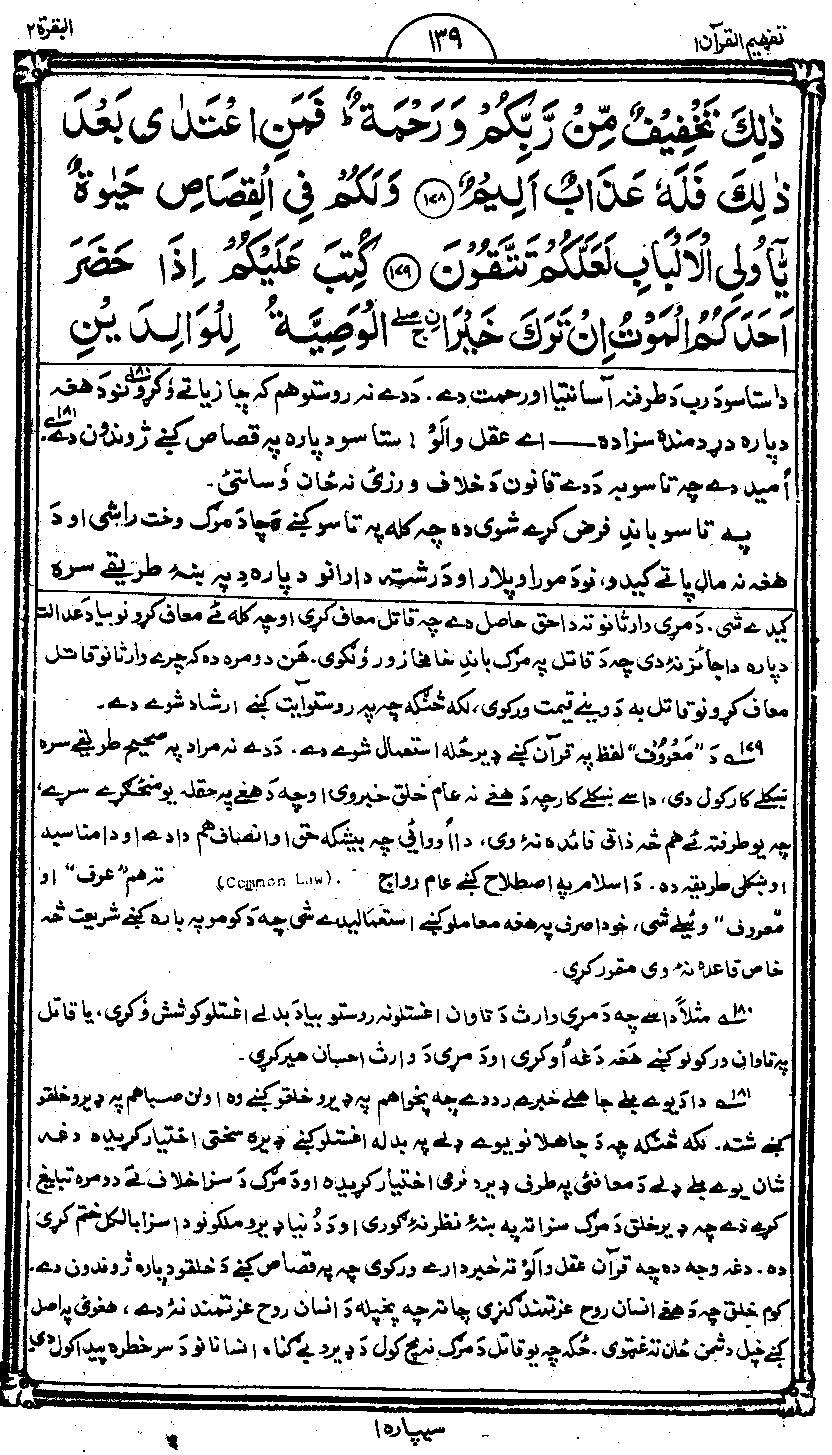 تفهيم القرآن ١
١٣٩
البقرة ٢
ذٰلِكَ تَخْفِيْفٌ مِّنْ رَّبِّكُمْ وَرَحْمَةٌ ؕ فَمَنِ اعْتَدٰى بَعْدَ
ذٰلِكَ فَلَهٗ عَذَابٌ اَلِيْمٌ ﴿١٧٨﴾ وَلَكُمْ فِى الْقِصَاصِ حَيٰوةٌ
يّٰۤاُولِى الْاَلْبَابِ لَعَلَّكُمْ تَتَّقُوْنَ ﴿١٧٩﴾ كُتِبَ عَلَيْكُمْ اِذَا حَضَرَ
اَحَدَكُمُ الْمَوْتُ اِنْ تَرَكَ خَيْرًا ۖۚ الْوَصِيَّةُ لِلْوَالِدَيْنِ
داستاسو د رب د طرفنه آسانتيا اور رحمت دے. د دے نه روستو هم كه چا زياتے وكړو ١٨٠ نو د هغه
دپاره دردمنده سزا ده —— اے عقل والو! ستاسو دپاره په قصاص كښے ژوندون دے. ١٨١
اميد دے چه تاسو به د دے قانون د خلاف ورزئ نه ځان وساتئ.
په تاسو باند فرض كړے شوى ده چه كله په تاسو كښے چا د مرګ وخت راشى او د
هغه نه مال پاتے كيدو، نو د مور او پلار او د رشته دارانو دپاره د په ښۀ طريقے سره
كيدے شى. د مړى وارثانو ته دا حق حاصل دے چه قاتل معاف كړى او چه كله ئے معاف كړو نو بيا د عدالت
دپاره دا جائز نۀ دى چه د قاتل په مرګ باند خامخا زور وكړى. هن دومره ده كه چرے وارثانو قاتل
معاف كړو نو قاتل به د وينے قيمت وركوى، لكه څنګه چه په روستو آيت كښے ارشاد شوے دے.
١٧٩ د "معروف" لفظ په قرآن كښے ډير ځله استعمال شوے دے. د دے نه مراد په صحيح طريقے سره
نيكلے كار كول دى، داسے نيكلے كار چه د هغے نه عام خلق خبر وى او چه د هغے په حقله يو منځګړے سړے،
چه يو طرفته ئے هم څه ذاتى فائده نۀ وى، دا ووائي چه بيشكه حق او انصاف هم دا دے او دا مناسبه
او ښكلى طريقه ده. د اسلام په اصطلاح كښے عام رواج (Common Law). ته هم "عرف" او
معروف" وئيلے شى، خو دا صرف په هغه معاملو كښے استعماليدے شى چه د كومو په باره كښے شريعت څه
خاص قاعده نۀ وى مقرر كړى.
١٨٠ مثلاً داسے چه د مړى وارث د تاوان اغستلو نه روستو بيا د بدلے اغستلو كوشش وكړى، يا قاتل
په تاوان وركولو كښے هغه دغه وكړى او د مړى د وارث احسان هير كړى.
١٨١ دا د يوے بلے جاهلے خبرے رد دے چه پخوا هم په ډيرو خلقو كښے وه او نن صبا هم په ډيرو خلقو
كښے شته. لكه څنګه چه د جاهلانو يوے ډلے په بدله اغستلو كښے ډيره سختى اختيار كړيده دغه
شان يوے بلے ډلے د معافئى په طرف ډيره نرمى اختيار كړيده او د مرګ د سزا خلاف ئے دومره تبليغ
كړے دے چه ډير خلق د مرګ سزا ته په ښۀ نظر نۀ ګورى او د دنيا ډيرو ملكونو دا سزا بالكل ختم كړى
ده. دغه وجه ده چه قرآن عقل والو ته خبردارے وركوى چه په قصاص كښے د خلقو دپاره ژوندون دے.
كوم خلق چه د هغے انسان روح عزتمند ګنړى چا ته چه پخپله د انسان روح عزتمند نۀ دے، هغوى په اصل
كښے خپل دشمن ځان ته غټوى. ځكه چه يو قاتل د مرګ نه بچ كول د ډيرو بے ګناه انسانانو د سر خطره پيدا كول دى
سيپاره ١